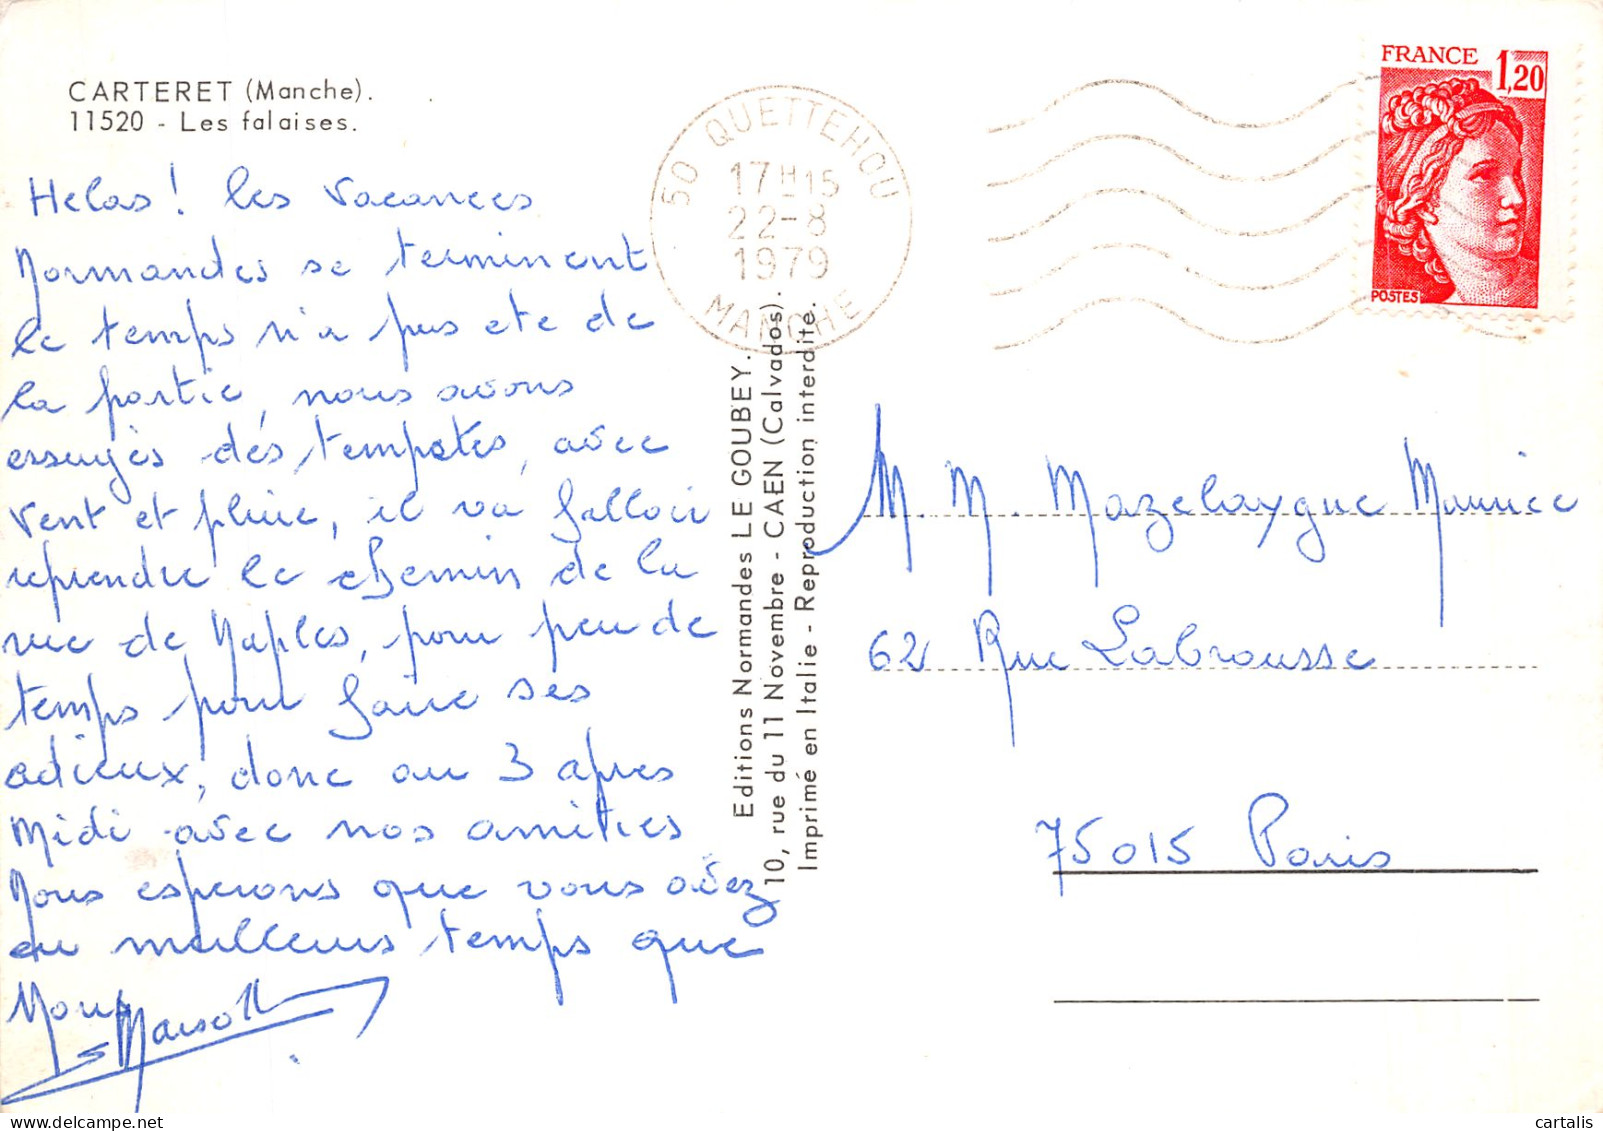 CARTERET (Manche).
11520 - Les falaises.
Helas! les vacances
Normandes se terminent
le temps n'a pas ete de
la partie, nous avons
essuyés des tempetes, avec
vent et pluie, il va falloir
reprendre le chemin de la
rue de Naples, pour peu de
temps pour faire ses
adieux, donc au 3 apres
Midi avec nos amitiés
Nous esperons que vous avez
eu meilleurs temps que
Nous
50 QUETTEHOU
17H15
22-8
1979
MANCHE
Editions Normandes LE GOUBEY.
10, rue du 11 Novembre - CAEN (Calvados).
Imprimé en Italie - Reproduction interdite.
FRANCE 1,20
POSTES
M. M. Mazelaygue Maurice
62 Rue Labrousse
75015 Paris
cartalis
www.delcampe.net